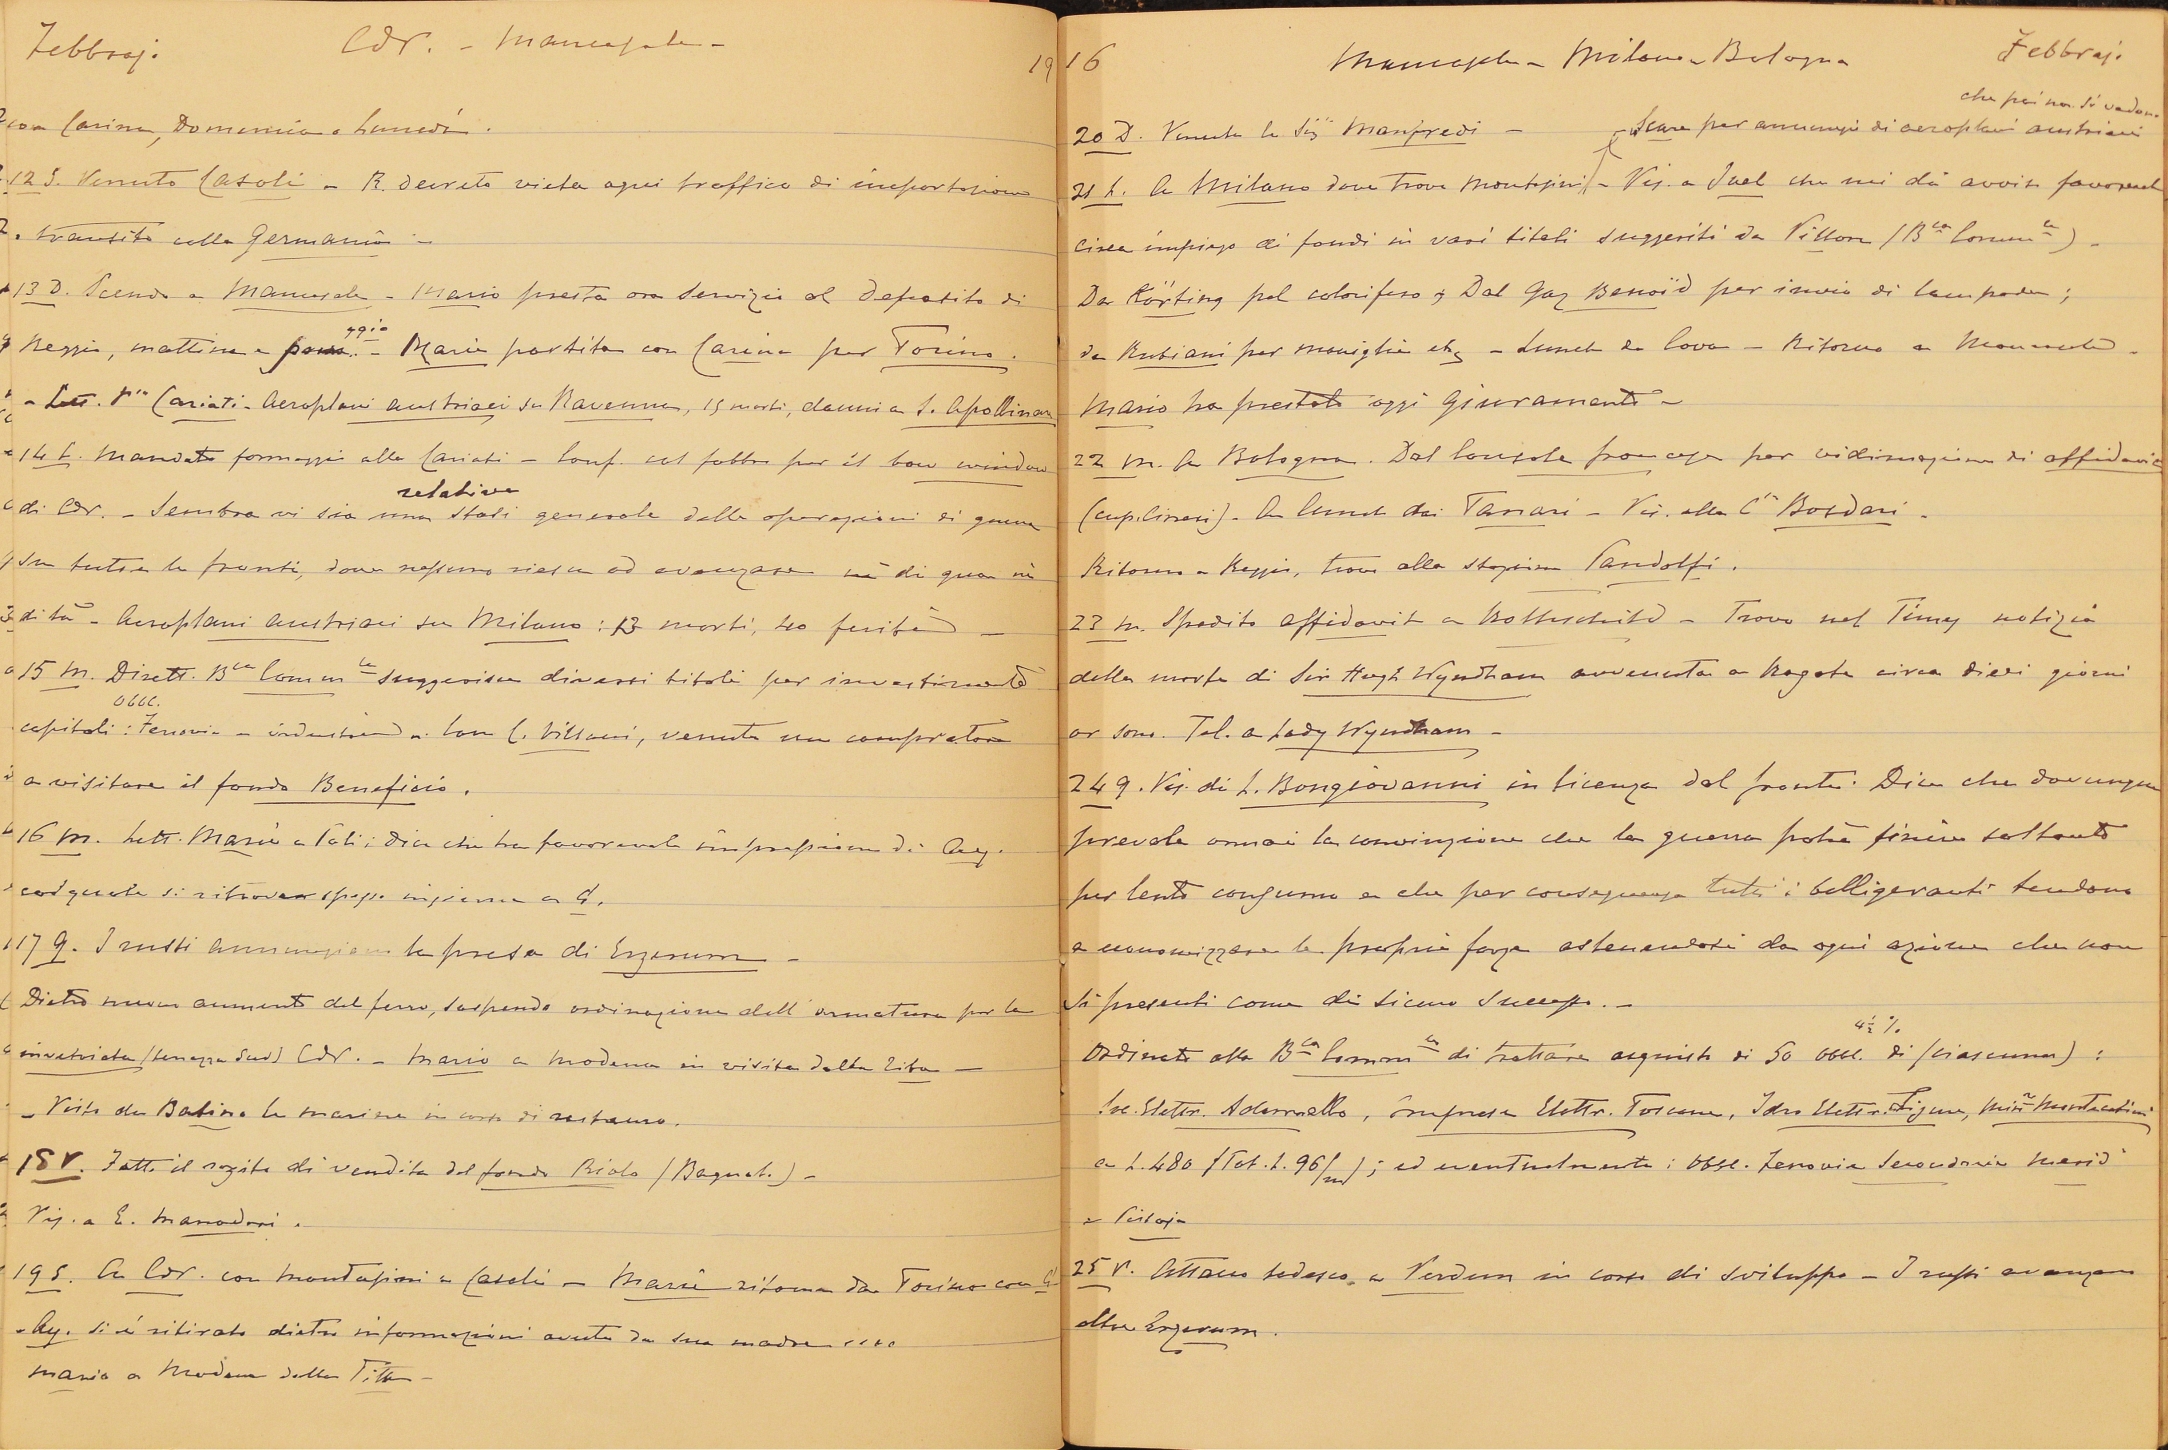 Febbraj.
CdV. - Mancasale -
19
con Carina, Domenica e Lunedì.
12 S. Venuto Casoli - R. decreto vieta ogni traffico di importazione
e transito colla Germania -
13 D. Scendo a Mancasale - Mario presta ora servizio al deposito di
ggio
Reggio, mattina e pom. - Maria partita con Carina per Torino.
- Lett. Cariati - Aeroplani austriaci su Ravenna, 15 morti, danni a S. Apollinare
14 L. Mandato formaggi alla Cariati - Conf. col fabbro per il bow window
relativa
di CdV. - Sembra vi sia una stasi generale delle operazioni di guerra
su tutte le fronti, dove nessuno riesce ad avanzare nè di qua nè
di là - Aeroplani austriaci su Milano: 13 morti, 40 feriti -
15 M. Dirett. Bca Commle suggerisce diversi titoli per investimento
obbl.
capitali: Ferrovie - industrie - Con C. Villani, venuto un compratore
a visitare il fondo Beneficio.
16 M. Lett. Maria a Tali: dice che ha favorevole impressione di Ag.
col quale si ritrovan spesso insieme a G.
17 G. I russi annunziano la presa di Erzerum -
Dietro nuovo aumento del ferro, sospendo ordinazione dell' armatura per la
invetriata (terrazza Sud) CdV. - Mario a Modena in visita della Tita -
- Visto da Batino le marine in corso di restauro.
18 V. Fatto il rogito di vendita del fondo Riolo (Bagnolo) -
Vis. a E. Manodori.
19 S. A CdV. con Montasini e Casoli - Maria ritorna da Torino con G.
- Ag. si è ritirato dietro informazioni avute da sua madre ....
Mario a Modena dalla Titta -
16
Mancasale - Milano - Bologna
Febbraj.
che poi non si vedono
20 D. Venuta la Sig.ra Manfredi - - Scare per annunzi di aeroplani austriaci
21 L. A Milano dove trovo Montasini - Vis. a Juel che mi dà avviso favorevole
circa impiego di fondi in vari titoli suggeriti da Villoni (Bca Commle) -
Da Körting pel calorifero; Dal Gaz Benoïd per invio di lampade;
da Rubiani per maniglie etc - Lunch da Cova - Ritorno a Mancasale -
Mario ha prestato oggi Giuramento -
22 M. A Bologna. Dal Console francese per vidimazione di affidavit
(cup. cinesi) - A lunch dai Tanari - Vis. alla C.sa Bosdari -
Ritorno a Reggio, trovo alla stazione Pandolfi.
23 M. Spedito affidavit a Rothschild - Trovo nel Times notizia
della morte di Sir Hugh Wyndham avvenuta a Rogate circa dieci giorni
or sono. Tel. a Lady Wyndham -
24 G. Vis. di L. Bongiovanni in licenza dal fronte. Dice che dovunque
prevale ormai la convinzione che la guerra potrà finire soltanto
per lento consumo e che per conseguenza tutti i belligeranti tendono
a economizzare le proprie forze astenendosi da ogni azione che non
si presenti come di sicuro successo. -
4½ %
Ordinato alla Bca Commle di trattare acquisto di 50 obbl. di (ciascuna):
Soc. Elettr. Adamello, Impresa Elettr. Toscana, Idro Elettr. Ligure, Mine Montecatini
a L. 480 (Tot. L. 96/m); ed eventualmente: Obbl. Ferrovie Secondarie Merid
e Pistoja
25 V. Attacco tedesco a Verdun in corso di sviluppo - I russi avanzano
oltre Erzerum.